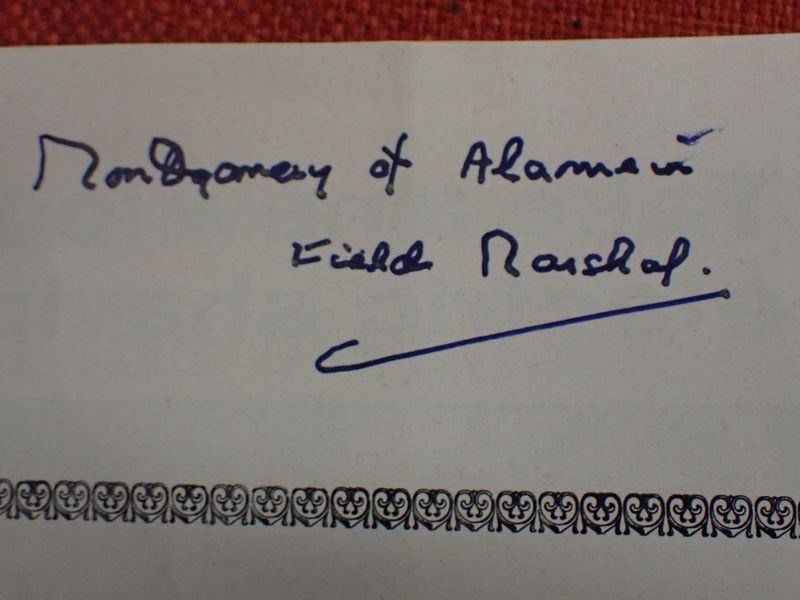 Montgomery of Alamein
Field Marshal.